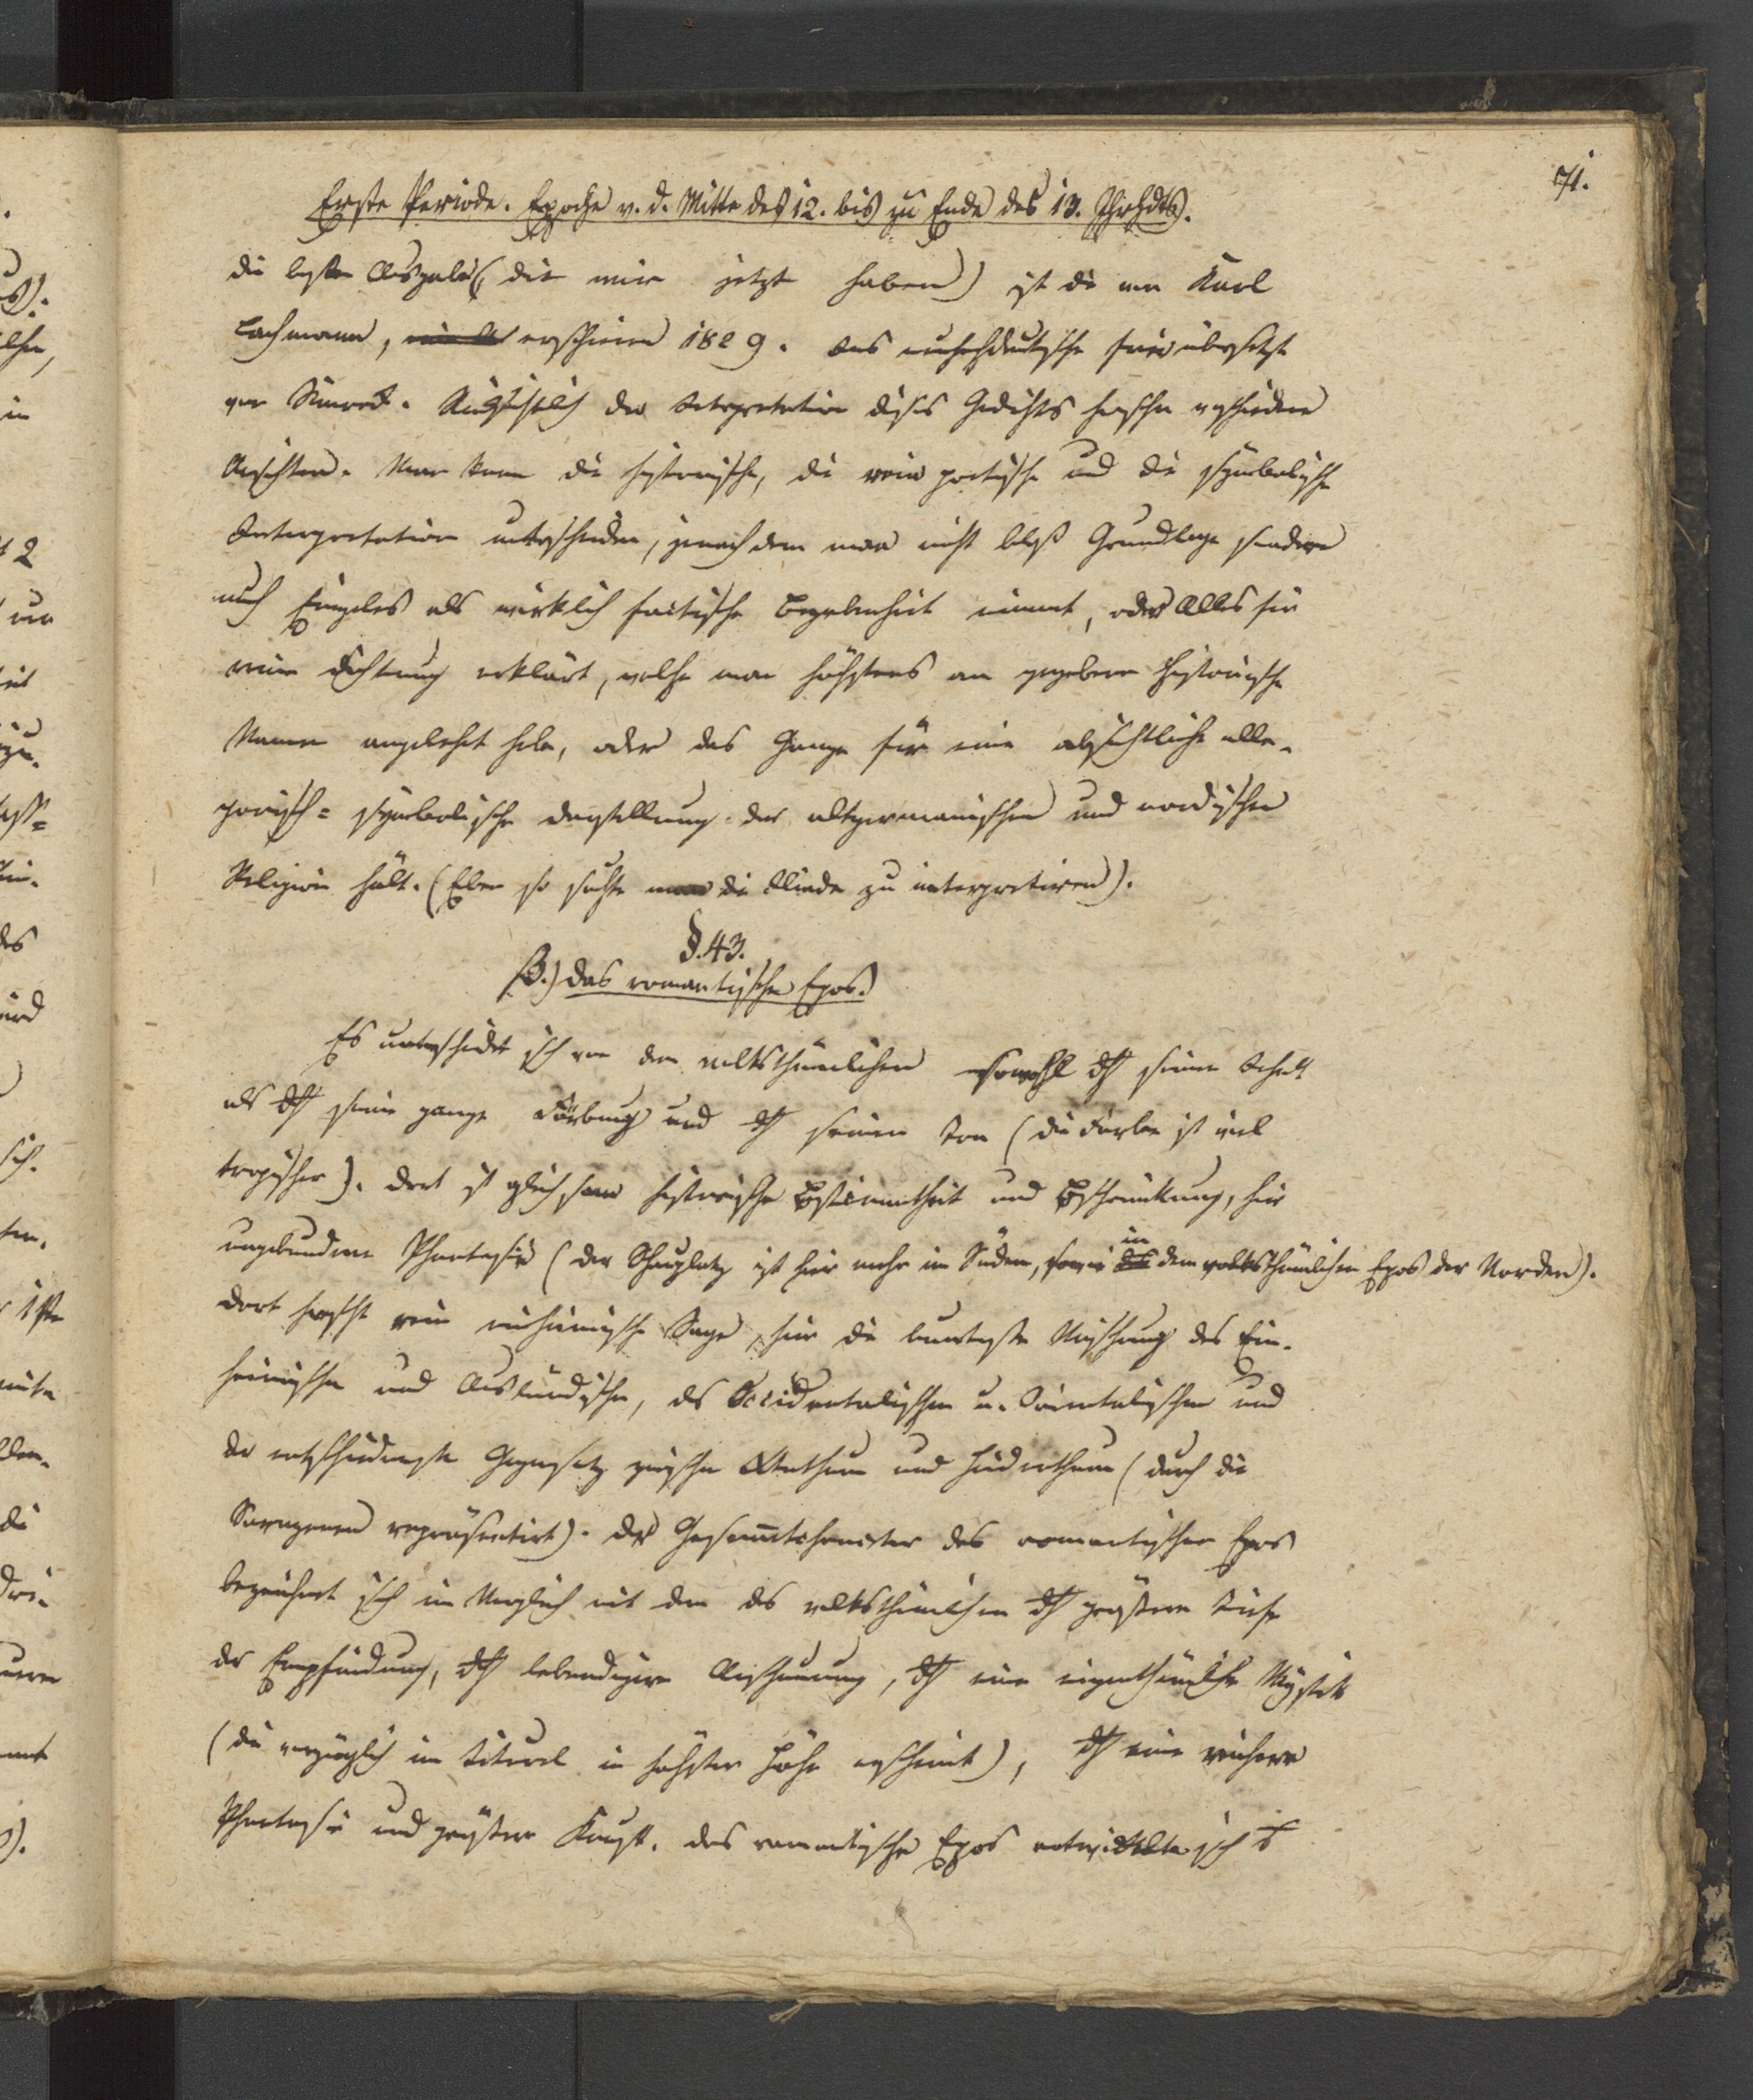 71.
Erste Periode. Epoche v. d. Mitte des 12. bis zu Ende des 13. Jhrhdts.
die beste Ausgabe (die wir jetzt haben) ist die von Karl
Lachmann, erschienen 1829. Ins neuhochdeutsche frei übersetzt
von Simrock. Rücksichtlich der Interpretation dieses Gedichts herschen verschiedene
Ansichten. Man kann die historische, die rein poetische und die symbolische
Interpretation unterscheiden, jenachdem man nicht bloß Grundlage sondern
auch Einzelnes als wirklich factische Begebenheit nimmt, oder Alles für
reine Dichtung erklärt, welche man höchstens an gegebene historische
Namen angelehnt habe, oder das Ganze für eine absichtliche alle-
gorisch-symbolische Darstellung der altgermanischen und nordischen
Religion hält. (Eben so suchte man die Iliade zu interpretiren).
§. 43.
β.) Das romantische Epos.
Es unterscheidet sich von dem volksthümlichen sowohl dch seinen Inhalt
als dch seine ganze Färbung und dch seinen Ton (die Farbe ist viel
tropischer). Dort ist gleichsam historische Bestimmtheit und Beschränkung, hier
ungebundene Phantasie (der Schauplatz ist hier mehr im Süden, sowie in dem volksthümlichen Epos der Norden).
Dort herscht rein einheimische Sage, hier die bunteste Mischung des Ein-
heimischen und Ausländischen, des Occidentalischen u. Orientalischen und
der entschiedenste Gegensatz zwischen Xstenthum und Heidenthum (durch die
Sarazenen repräsentirt). Der Gesam̄tcharacter des romantischen Epos
bezeichnet sich im Vergleich mit dem des volksthümlichen dch größere Tiefe
der Empfindung, dch lebendigere Anschauung, dch eine eigenthümliche Mystik
(die vorzüglich im Titurel in höchster Höhe erscheint), dch eine reichere
Phantasie und größere Kunst. Das romantische Epos entwickelte sich